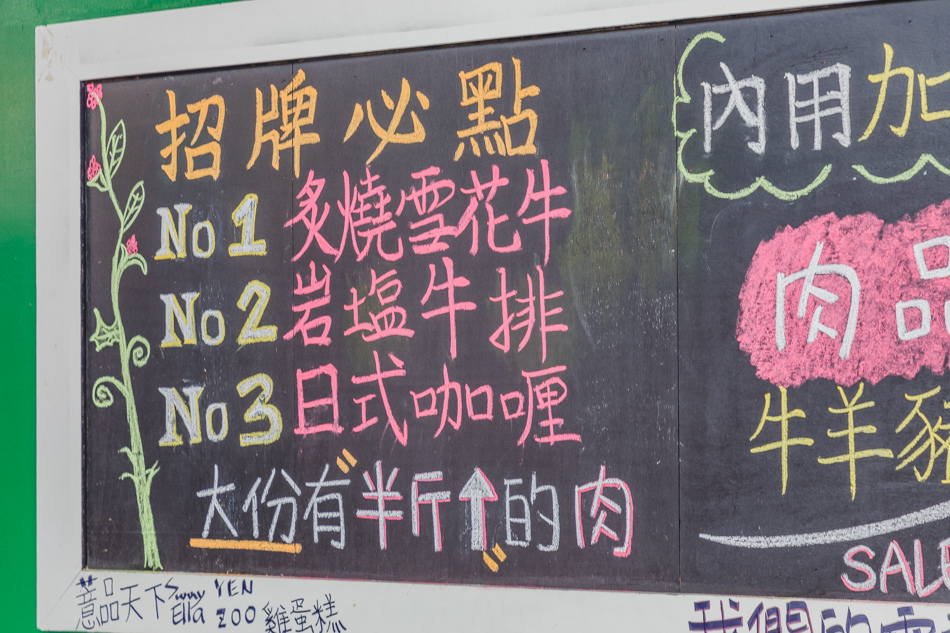 招牌必點
No 1 炙燒雪花牛
No 2 岩塩牛排
No 3 日式咖喱
大份有"半斤↑"的肉
內用加
肉品
牛羊豬
SALE
薏品天下 Sunny Ella YEN ZOO 雞蛋糕
我們的